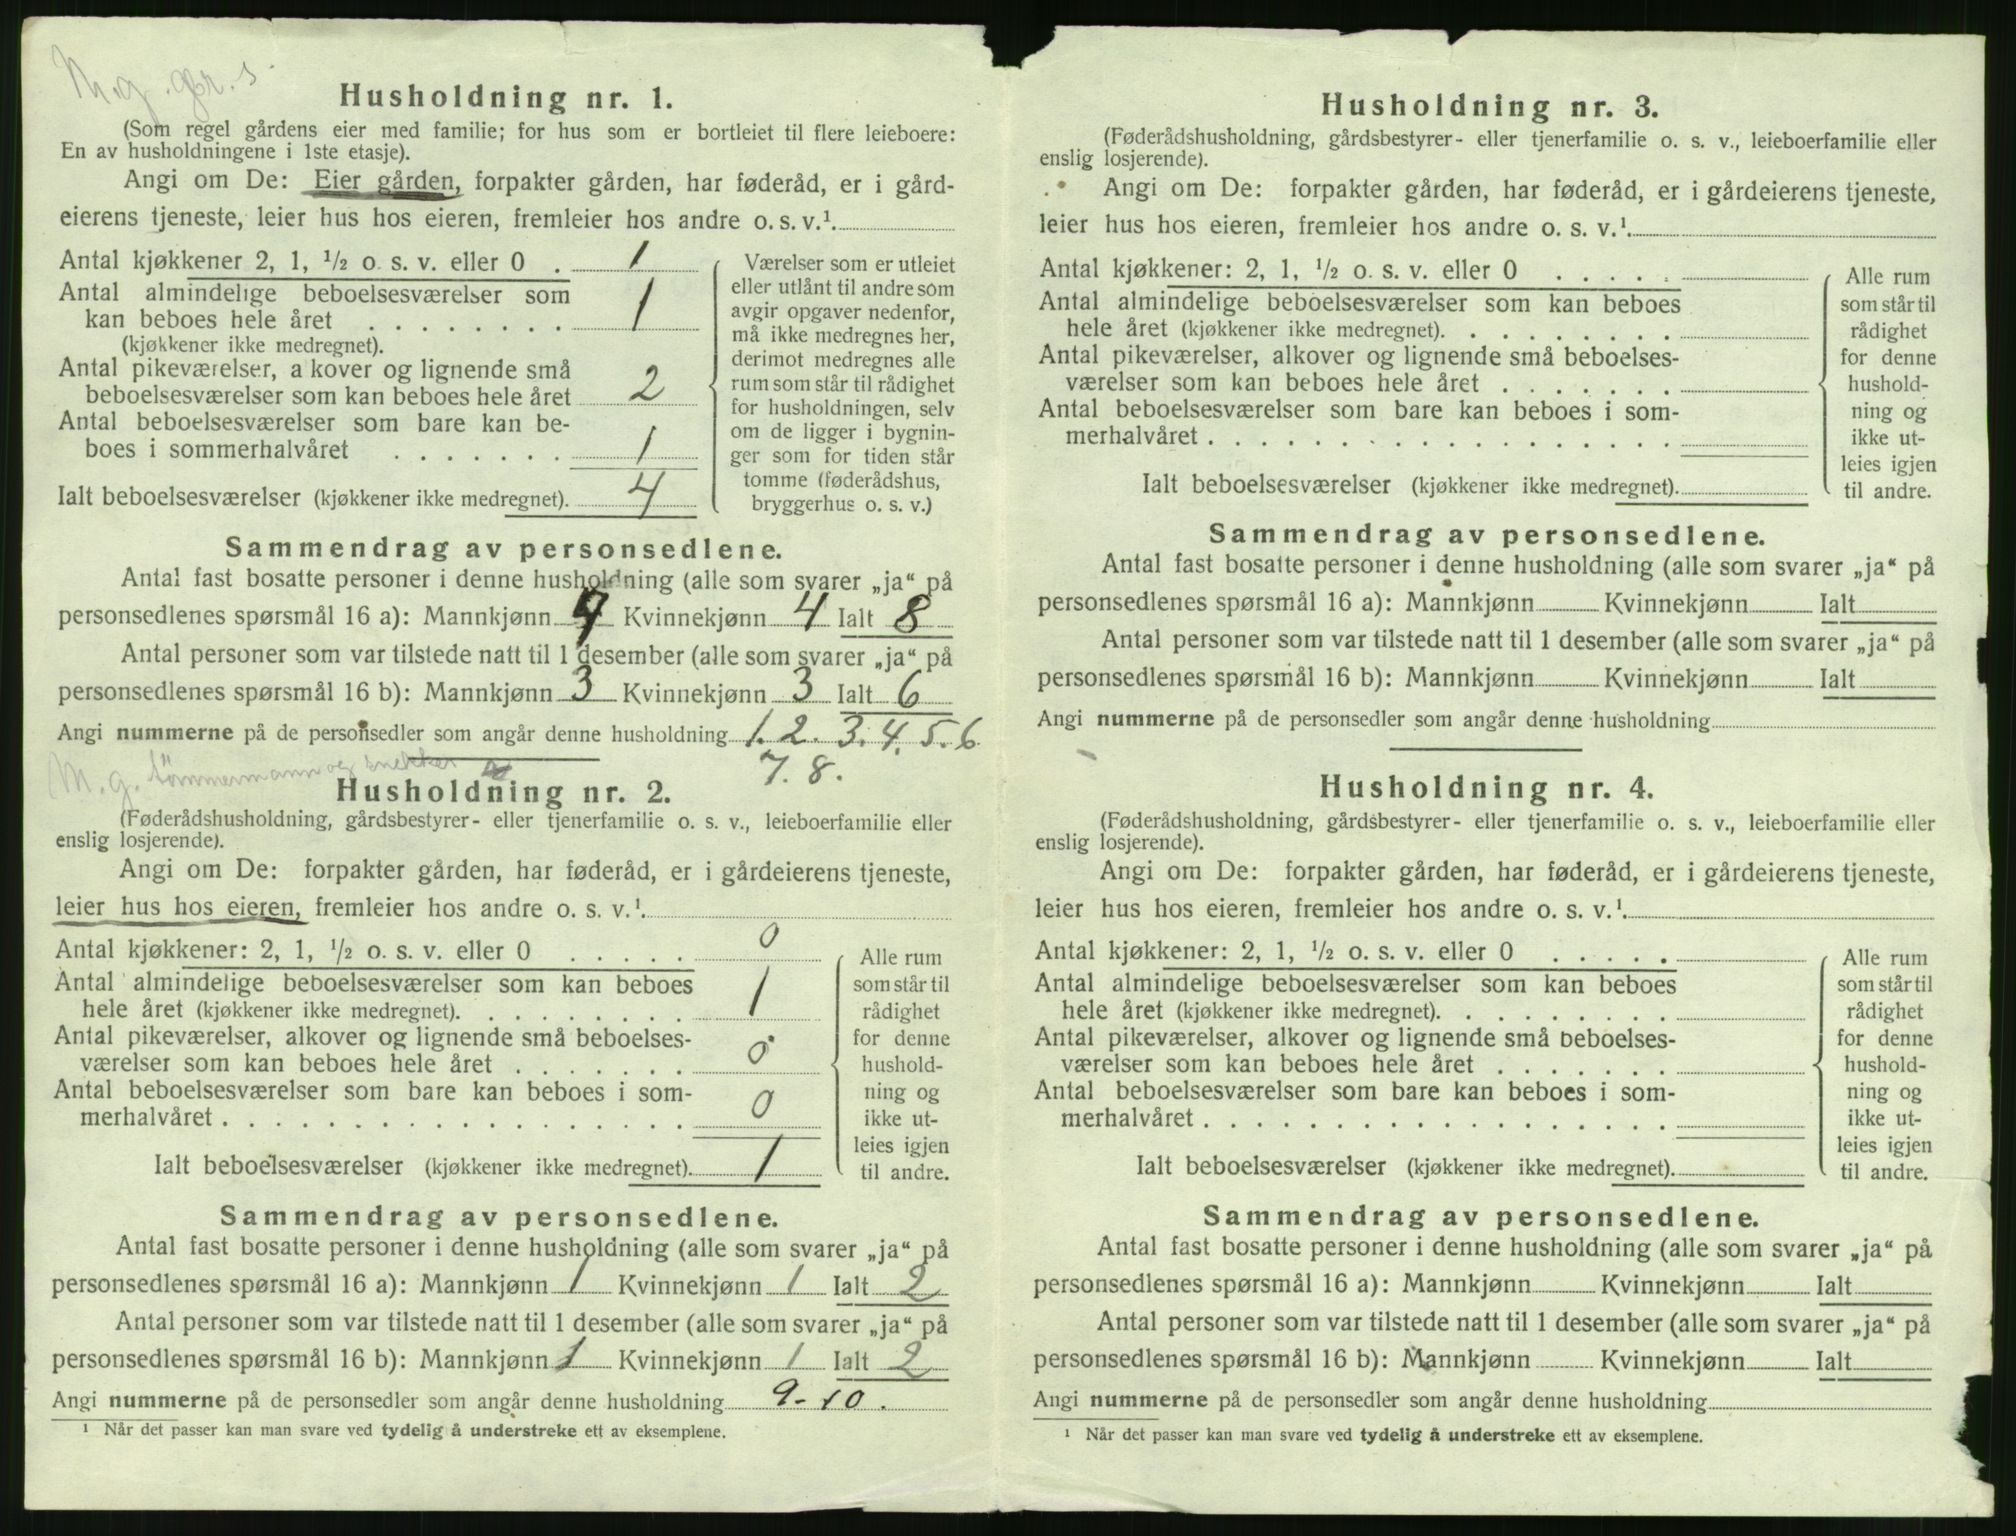 M.g. gbr. s.
Husholdning nr. 1.
(Som regel gårdens eier med familie; for hus som er bortleiet til flere leieboere:
En av husholdningene i 1ste etasje).
Angi om De: Eier gården, forpakter gården, har føderåd, er i gård-
eierens tjeneste, leier hus hos eieren, fremleier hos andre o. s. v.¹.
Antal kjøkkener 2, 1, ½ o. s. v. eller 0 . 1
Antal almindelige beboelsesværelser som
kan beboes hele året . . . . . . . . 1
(kjøkkener ikke medregnet).
Antal pikeværelser, a kover og lignende små
beboelsesværelser som kan beboes hele året 2
Antal beboelsesværelser som bare kan be-
boes i sommerhalvåret . . . . . . . 1
Ialt beboelsesværelser (kjøkkener ikke medregnet). 4
Værelser som er utleiet
eller utlånt til andre som
avgir opgaver nedenfor,
må ikke medregnes her,
derimot medregnes alle
rum som står til rådighet
for husholdningen, selv
om de ligger i bygnin-
ger som for tiden står
tomme (føderådshus,
bryggerhus o. s. v.)
Sammendrag av personsedlene.
Antal fast bosatte personer i denne husholdning (alle som svarer „ja“ på
personsedlenes spørsmål 16 a): Mannkjønn 4 Kvinnekjønn 4 Ialt 8
Antal personer som var tilstede natt til 1 desember (alle som svarer „ja“ på
personsedlenes spørsmål 16 b): Mannkjønn 3 Kvinnekjønn 3 Ialt 6
Angi nummerne på de personsedler som angår denne husholdning 1. 2. 3. 4. 5. 6
7. 8.
M. g. tømmermann og snekker
Husholdning nr. 2.
(Føderådshusholdning, gårdsbestyrer- eller tjenerfamilie o. s. v., leieboerfamilie eller
enslig losjerende).
Angi om De: forpakter gården, har føderåd, er i gårdeierens tjeneste,
leier hus hos eieren, fremleier hos andre o. s. v.¹.
Antal kjøkkener: 2, 1, ½ o. s. v. eller 0 . . . . . 0
Antal almindelige beboelsesværelser som kan beboes
hele året (kjøkkener ikke medregnet). . . . . . . . . 1
Antal pikeværelser, alkover og lignende små beboelses-
værelser som kan beboes hele året . . . . . . . 0
Antal beboelsesværelser som bare kan beboes i som-
merhalvåret . . . . . . . . . . . . . . . . . . 0
Ialt beboelsesværelser (kjøkkener ikke medregnet). 1
Alle rum
som står til
rådighet
for denne
hushold-
ning og
ikke ut-
leies igjen
til andre.
Sammendrag av personsedlene.
Antal fast bosatte personer i denne husholdning (alle som svarer „ja“ på
personsedlenes spørsmål 16 a): Mannkjønn 1 Kvinnekjønn 1 Ialt 2
Antal personer som var tilstede natt til 1 desember (alle som svarer „ja“ på
personsedlenes spørsmål 16 b): Mannkjønn 1 Kvinnekjønn 1 Ialt 2
Angi nummerne på de personsedler som angår denne husholdning 9-10.
¹ Når det passer kan man svare ved tydelig å understreke ett av eksemplene.
Husholdning nr. 3.
(Føderådshusholdning, gårdsbestyrer- eller tjenerfamilie o. s. v., leieboerfamilie eller
enslig losjerende).
Angi om De: forpakter gården, har føderåd, er i gårdeierens tjeneste,
leier hus hos eieren, fremleier hos andre o. s. v.¹.
Antal kjøkkener: 2, 1, ½ o. s. v. eller 0 . . . . .
Antal almindelige beboelsesværelser som kan beboes
hele året (kjøkkener ikke medregnet). . . . . . . . .
Antal pikeværelser, alkover og lignende små beboelses-
værelser som kan beboes hele året . . . . . . .
Antal beboelsesværelser som bare kan beboes i som-
merhalvåret . . . . . . . . . . . . . . . . . .
Ialt beboelsesværelser (kjøkkener ikke medregnet).
Alle rum
som står til
rådighet
for denne
hushold-
ning og
ikke ut-
leies igjen
til andre.
Sammendrag av personsedlene.
Antal fast bosatte personer i denne husholdning (alle som svarer „ja“ på
personsedlenes spørsmål 16 a): Mannkjønn Kvinnekjønn Ialt
Antal personer som var tilstede natt til 1 desember (alle som svarer „ja“ på
personsedlenes spørsmål 16 b): Mannkjønn Kvinnekjønn Ialt
Angi nummerne på de personsedler som angår denne husholdning
Husholdning nr. 4.
(Føderådshusholdning, gårdsbestyrer- eller tjenerfamilie o. s. v., leieboerfamilie eller
enslig losjerende).
Angi om De: forpakter gården, har føderåd, er i gårdeierens tjeneste,
leier hus hos eieren, fremleier hos andre o. s. v.¹.
Antal kjøkkener: 2, 1, ½ o. s. v. eller 0 . . . . .
Antal almindelige beboelsesværelser som kan beboes
hele året (kjøkkener ikke medregnet). . . . . . . . .
Antal pikeværelser, alkover og lignende små beboelses-
værelser som kan beboes hele året . . . . . . .
Antal beboelsesværelser som bare kan beboes i som-
merhalvåret . . . . . . . . . . . . . . . . . .
Ialt beboelsesværelser (kjøkkener ikke medregnet).
Alle rum
som står til
rådighet
for denne
hushold-
ning og
ikke ut-
leies igjen
til andre.
Sammendrag av personsedlene.
Antal fast bosatte personer i denne husholdning (alle som svarer „ja“ på
personsedlenes spørsmål 16 a): Mannkjønn Kvinnekjønn Ialt
Antal personer som var tilstede natt til 1 desember (alle som svarer „ja“ på
personsedlenes spørsmål 16 b): Mannkjønn Kvinnekjønn Ialt
Angi nummerne på de personsedler som angår denne husholdning
¹ Når det passer kan man svare ved tydelig å understreke ett av eksemplene.